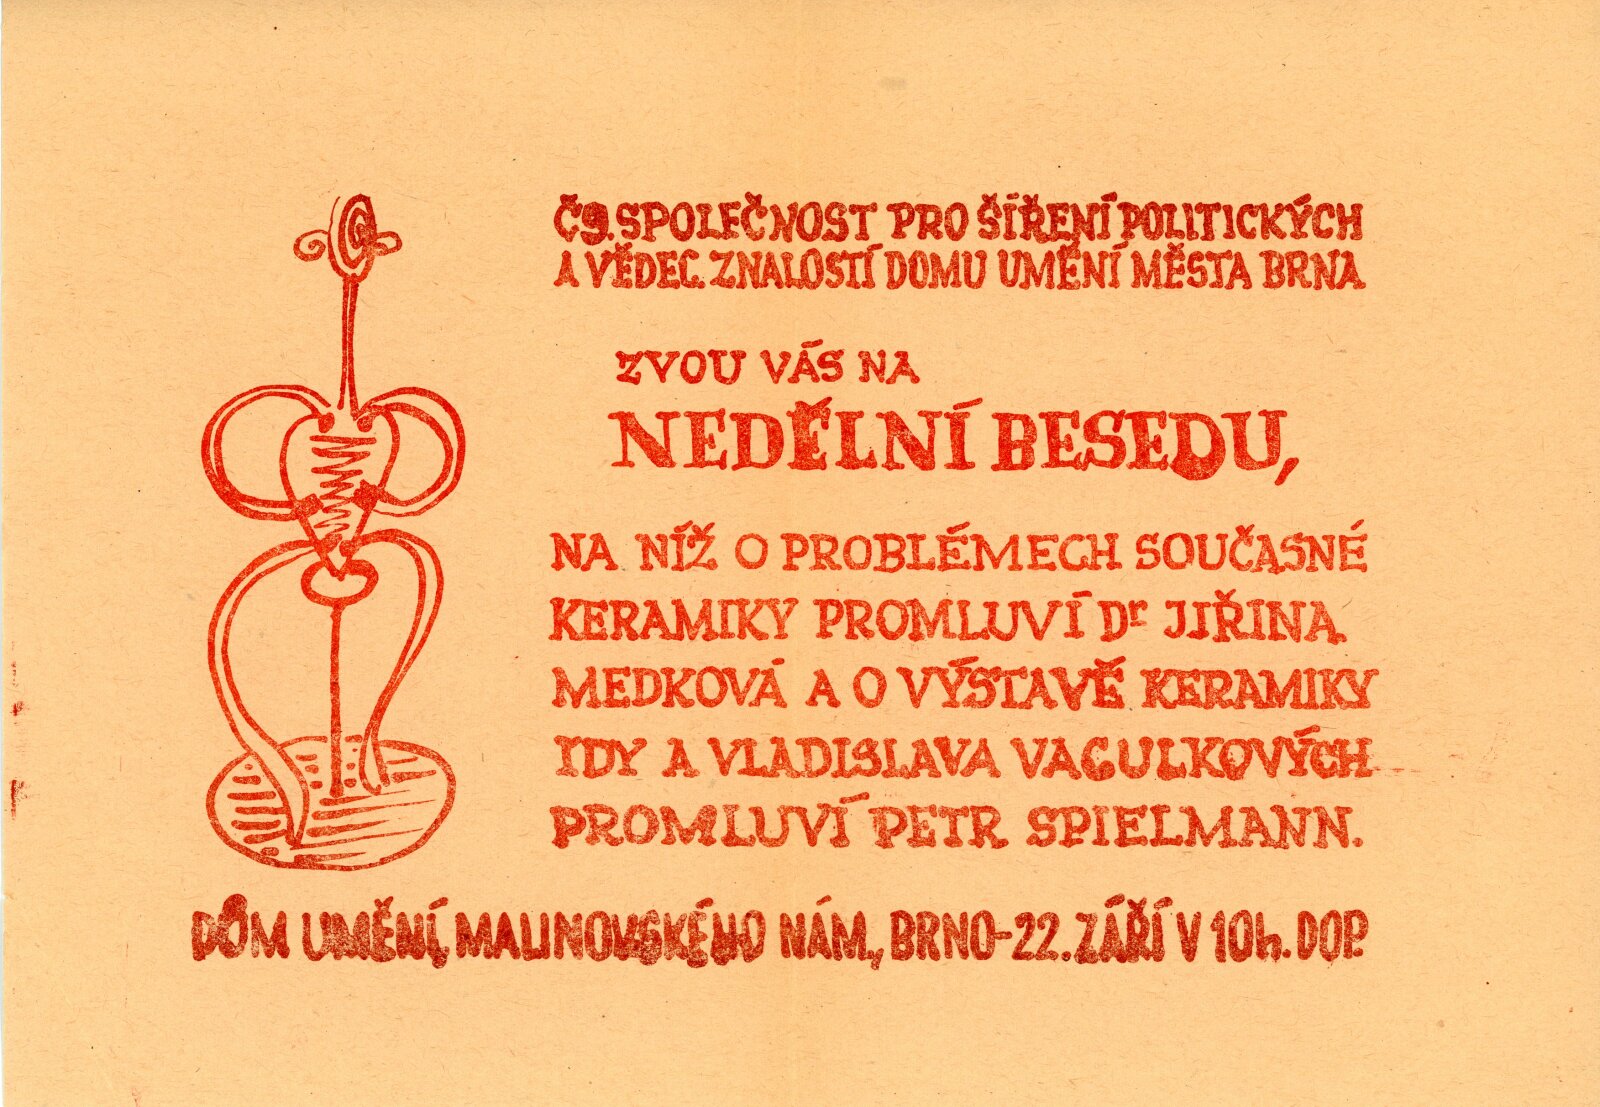 ČS. SPOLEČNOST PRO ŠÍŘENÍ POLITICKÝCH
A VĚDEC. ZNALOSTÍ DOMU UMĚNÍ MĚSTA BRNA
ZVOU VÁS NA
NEDĚLNÍ BESEDU,
NA NÍŽ O PROBLÉMECH SOUČASNÉ
KERAMIKY PROMLUVÍ Dr JIŘINA
MEDKOVÁ A O VÝSTAVĚ KERAMIKY
IDY A VLADISLAVA VACULKOVÝCH
PROMLUVÍ PETR SPIELMANN.
DŮM UMĚNÍ, MALINOVSKÉHO NÁM, BRNO-22. ZÁŘÍ V 10h. DOP.